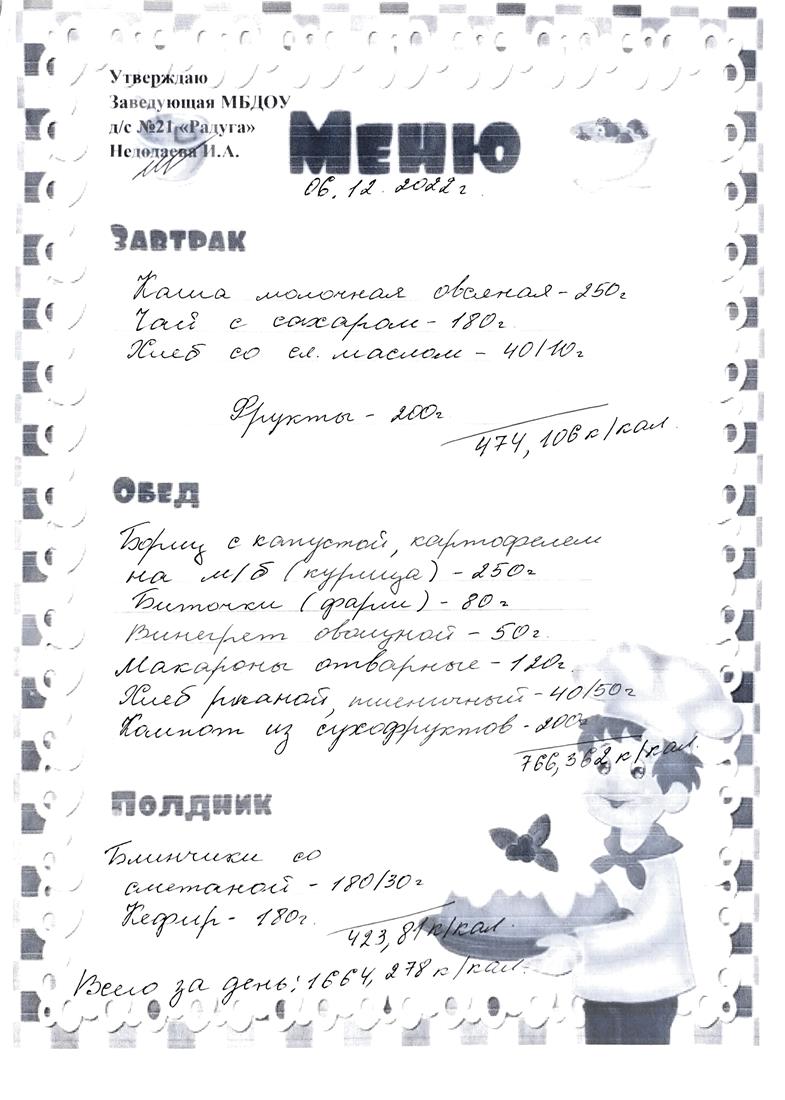 Утверждаю
Заведующая МБДОУ
д/с №21 «Радуга»
Недодаева И.А.
Меню
06.12.2022г.
Завтрак
Каша молочная овсяная - 250г
Чай с сахаром - 180г.
Хлеб со сл. маслом - 40/10г
Фрукты - 200г.
474,106 к/кал.
Обед
Борщ с капустой, картофелем
на м/б (курица) - 250г
Биточки (фарш) - 80г
Винегрет овощной - 50г.
Макароны отварные - 120г.
Хлеб ржаной, пшеничный - 40/50г
Компот из сухофруктов - 200г
766,362 к/кал.
Полдник
Блинчики со
сметаной - 180/30г
Кефир - 180г.
423,81 к/кал.
Всего за день: 1664,278 к/кал.